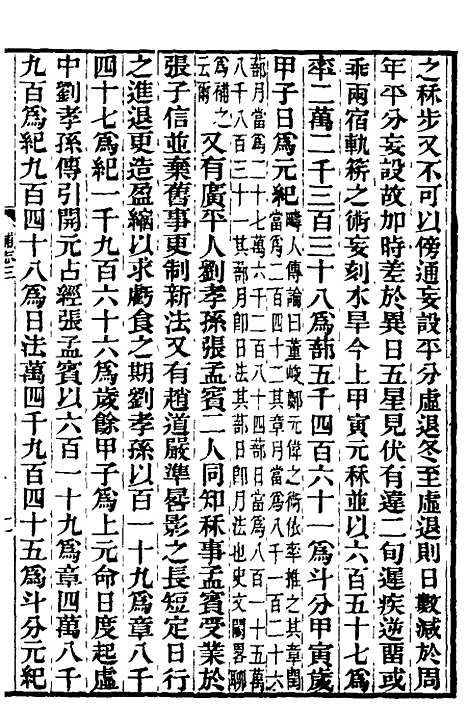 之秝步又不可以傍通妄設平分虛退冬至虛退則日數減於周
年平分妄設故加時差於異日五星見伏有違二旬遲疾逆畱或
乖兩宿軌筭之術妄刻水旱今上甲寅元秝並以六百五十七爲
率二萬二千三百三十八爲蔀五千四百六十一爲斗分甲寅歲
甲子日爲元紀
疇人傳論曰董峻鄭元偉之術依率推之其章閏
當爲二百四十二其章月當爲八千一百二十六
蔀月當爲二十七萬六千二百八十四蔀日當爲八百一十五萬
八千八百三十一其蔀月卽日法其蔀日卽月法也史文闕畧聊
爲補之
云爾
又有廣平人劉孝孫張孟賓二人同知秝事孟賓受業於
張子信並棄舊事更制新法又有趙道嚴準晷影之長短定日行
之進退更造盈縮以求虧食之期劉孝孫以百一十九爲章八千
四十七爲紀一千九百六十六爲歲餘甲子爲上元命日度起虛
中劉孝孫傳引開元占經張孟賓以六百一十九爲章四萬八千
九百爲紀九百四十八爲日法萬四千九百四十五爲斗分元紀
補志三